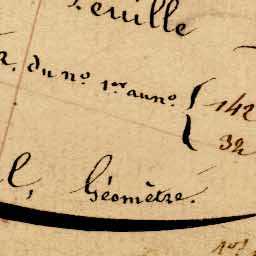 Feuille
du n.º 1.er au n.º { 142
32
l, Géomètre.